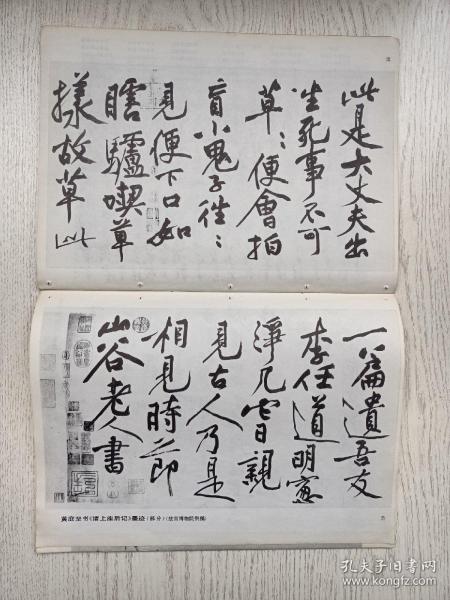 此是大丈夫出
生死事不可
草〻便會拍
盲小鬼子往〻
見便下口如
瞎驢喫草
樣故草此
一篇遺吾友
李任道明窓
淨几它日親
見古人乃是
相見時節
山谷老人書
黄庭坚书《诸上座后记》墨迹(部分)(故宫博物院供稿)
孔夫子旧书网